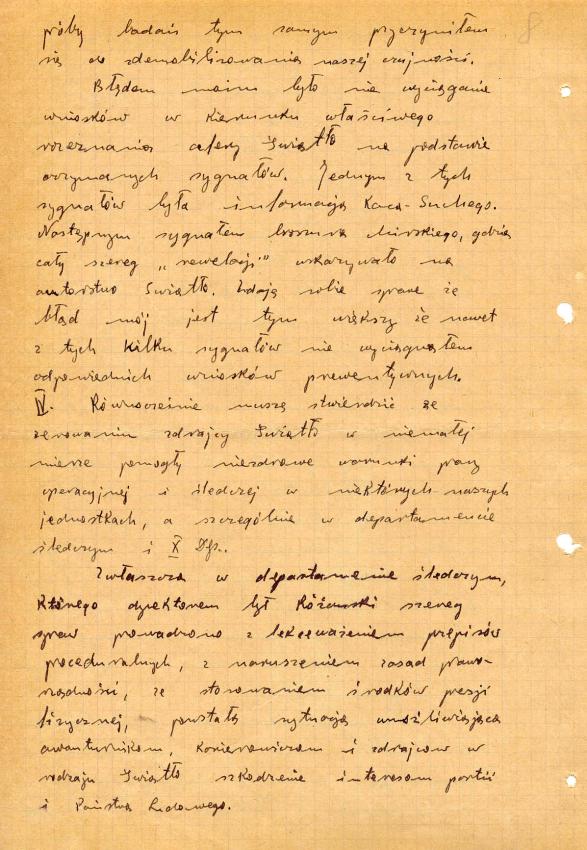 8
próby badań tym samym przyczyniłem
się do zdemobilizowania naszej czujności.
Błędem moim było nie wyciąganie
wniosków w kierunku właściwego
rozeznania afery Światło na podstawie
otrzymanych sygnałów. Jednym z tych
sygnałów była informacja Kaca-Suchego.
Następnym sygnałem broszura Mirskiego, gdzie
cały szereg „rewelacji" wskazywało na
autorstwo Światło. Zdaję sobie sprawę że
błąd mój jest tym większy że nawet
z tych kilku sygnałów nie wyciągnąłem
odpowiednich wniosków prewentywnych.
IV. Równocześnie muszę stwierdzić że
żerowaniu zdrajcy Światło w niemałej
mierze pomogły niezdrowe warunki pracy
operacyjnej i śledczej w niektórych naszych
jednostkach, a szczególnie w departamencie
śledczym i X Dep.
Zwłaszcza w departamencie śledczym,
którego dyrektorem był Różański szereg
spraw prowadzono z lekceważeniem przepisów
proceduralnych, z naruszeniem zasad prawo-
rządności, ze stosowaniem środków presji
fizycznej, powstała sytuacja umożliwiająca
awanturnikom, karierowiczom i zdrajcom w
rodzaju Światło szkodzenie interesom partii
i Państwa Ludowego.